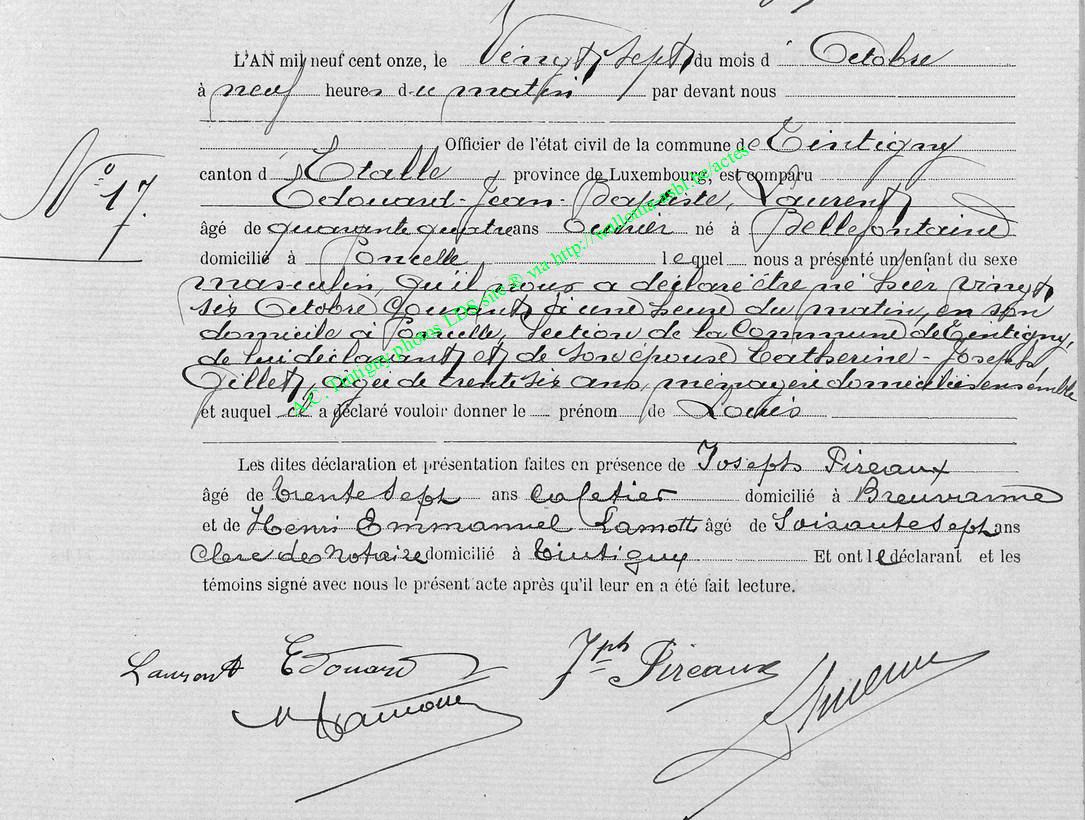 L'AN mil neuf cent onze, le Vingt sept du mois d' Octobre
à neuf heures du matin par devant nous
Officier de l'état civil de la commune de Tintigny
N° 17.
canton d' Etalle province de Luxembourg, est comparu
Edouard-Jean-Baptiste, Laurent
âgé de quarante quatre ans Ouvrier né à Bellefontaine
domicilié à Poncelle lequel nous a présenté un enfant du sexe
masculin, qu'il nous a déclaré être né hier vingt
six Octobre Courant à une heure du matin, en son
domicile à Poncelle, Section de la Commune de Tintigny,
de lui déclarant et de son épouse Catherine-Joseph
Gillet, agée de trente six ans, ménagère domiciliés ensemble
et auquel il a déclaré vouloir donner le prénom de Louis
Les dites déclaration et présentation faites en présence de Joseph Pireaux
âgé de trente sept ans cafetier domicilié à Breuvanne
et de Henri Emmanuel Lamotte âgé de Soixante sept ans
Clerc de Notaire domicilié à Tintigny Et ont le déclarant et les
témoins signé avec nous le présent acte après qu'il leur en a été fait lecture.
Laurent Edouard Jph Pireaux
Lamotte
A.C. Tintigny photos LDS site ® via http://wallonia-asbl.be/actes